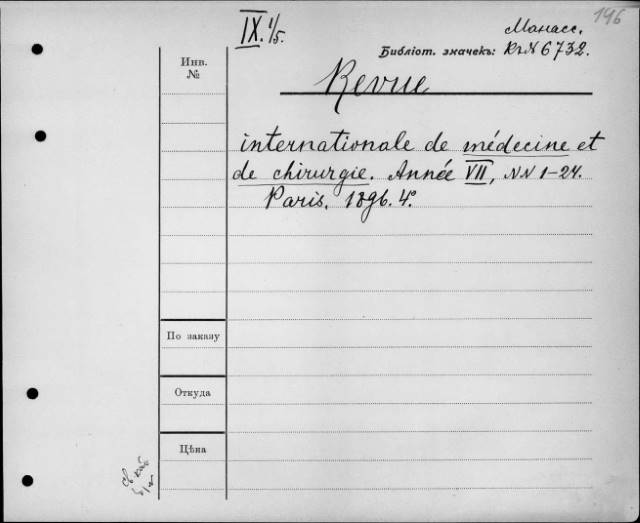 146
IX. 1/5.
Манасс.
Библіот. значекъ: Кг N 6732.
Инв.
№
Revue
internationale de médecine et
de chirurgie. Année VII, NN 1-24.
Paris. 1896. 4°.
По заказу
Откуда
Цѣна